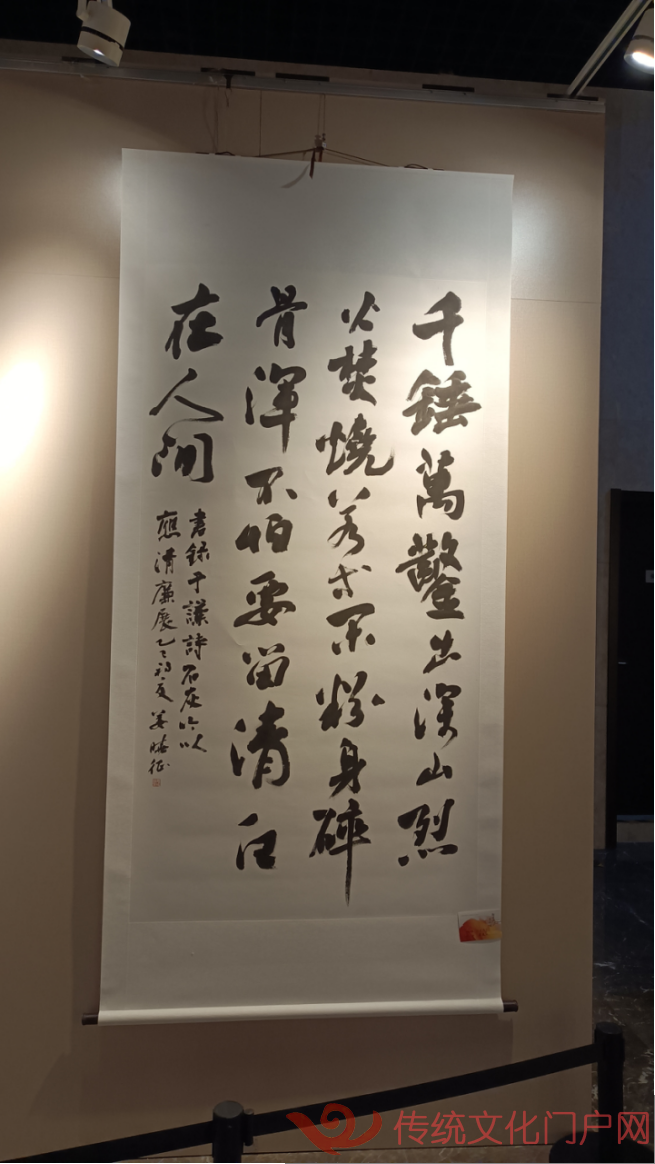 千錘萬鑿出深山烈
火焚燒若等閑粉身碎
骨渾不怕要留清白
在人間
書錄于謙詩石灰吟以
應清廉展乙巳初夏姜曉征
传统文化门户网